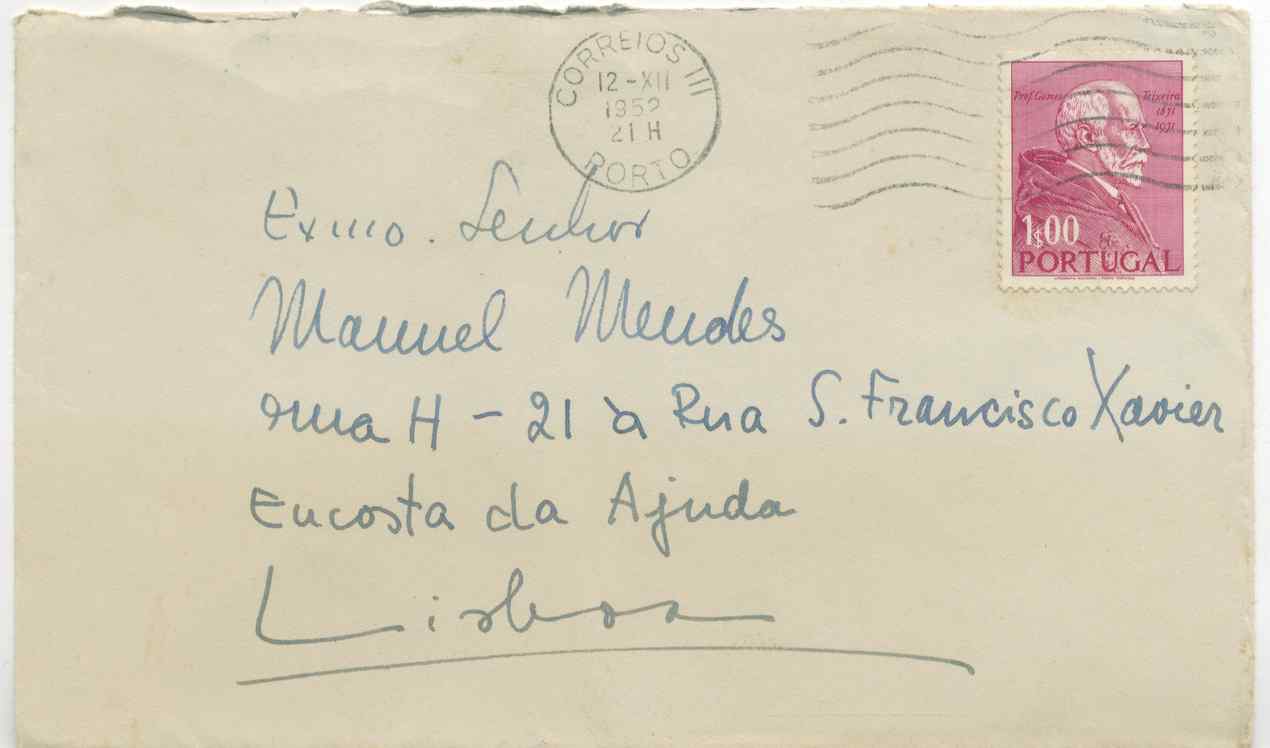 CORREIOS III
12-XII
1952
21 H
PORTO
Prof. Gomes Teixeira
1851
1931
1$00
PORTUGAL
Exmo. Senhor
Manuel Mendes
rua H - 21 à Rua S. Francisco Xavier
Encosta da Ajuda
Lisboa